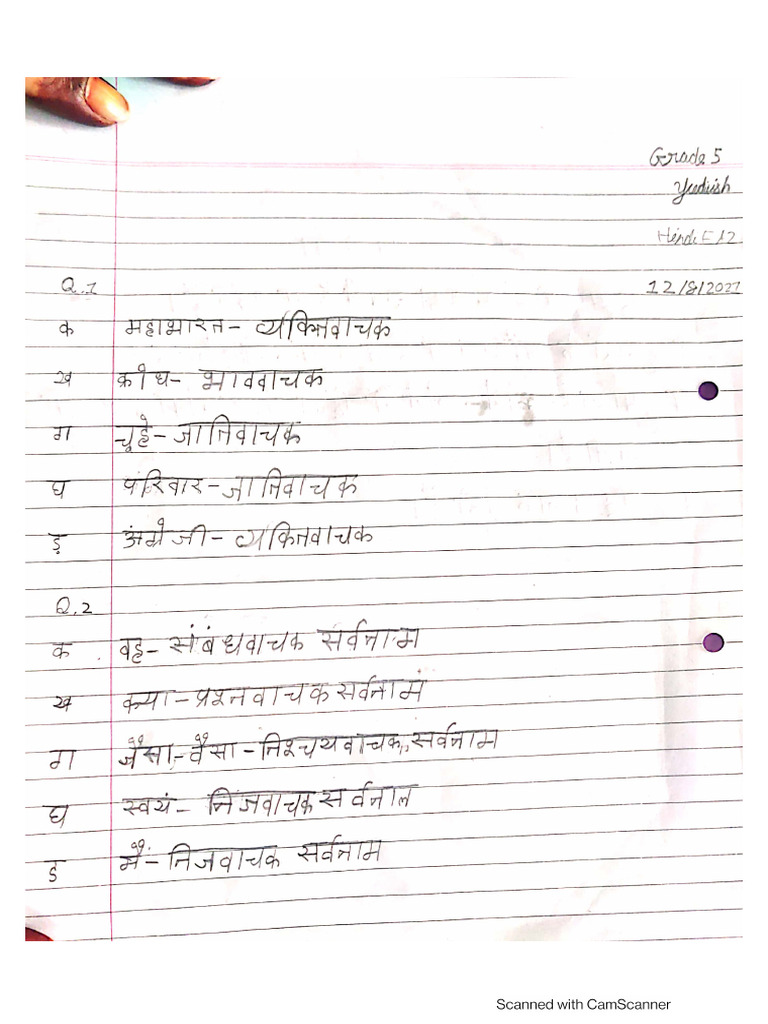 Grade 5
Yudish
Hindi F A2
Q.1 12/8/2021
क महाभारत- व्यकितवाचक
ख क्रोध- भाववाचक
ग चूहे-जातिवाचक
घ परिवार-जातिवाचक
ड़ अंग्रेजी- व्यकितवाचक
Q.2
क वह- सांबंधवाचक सर्वनाम
ख क्या-प्रश्नवाचक सर्वनामं
ग जैसा-वैसा-निश्चयवाचक सर्वनाम
घ स्वयं- निजवाचक सर्वनाल
ड मैं-निजवाचक सर्वनाम
Scanned with CamScanner